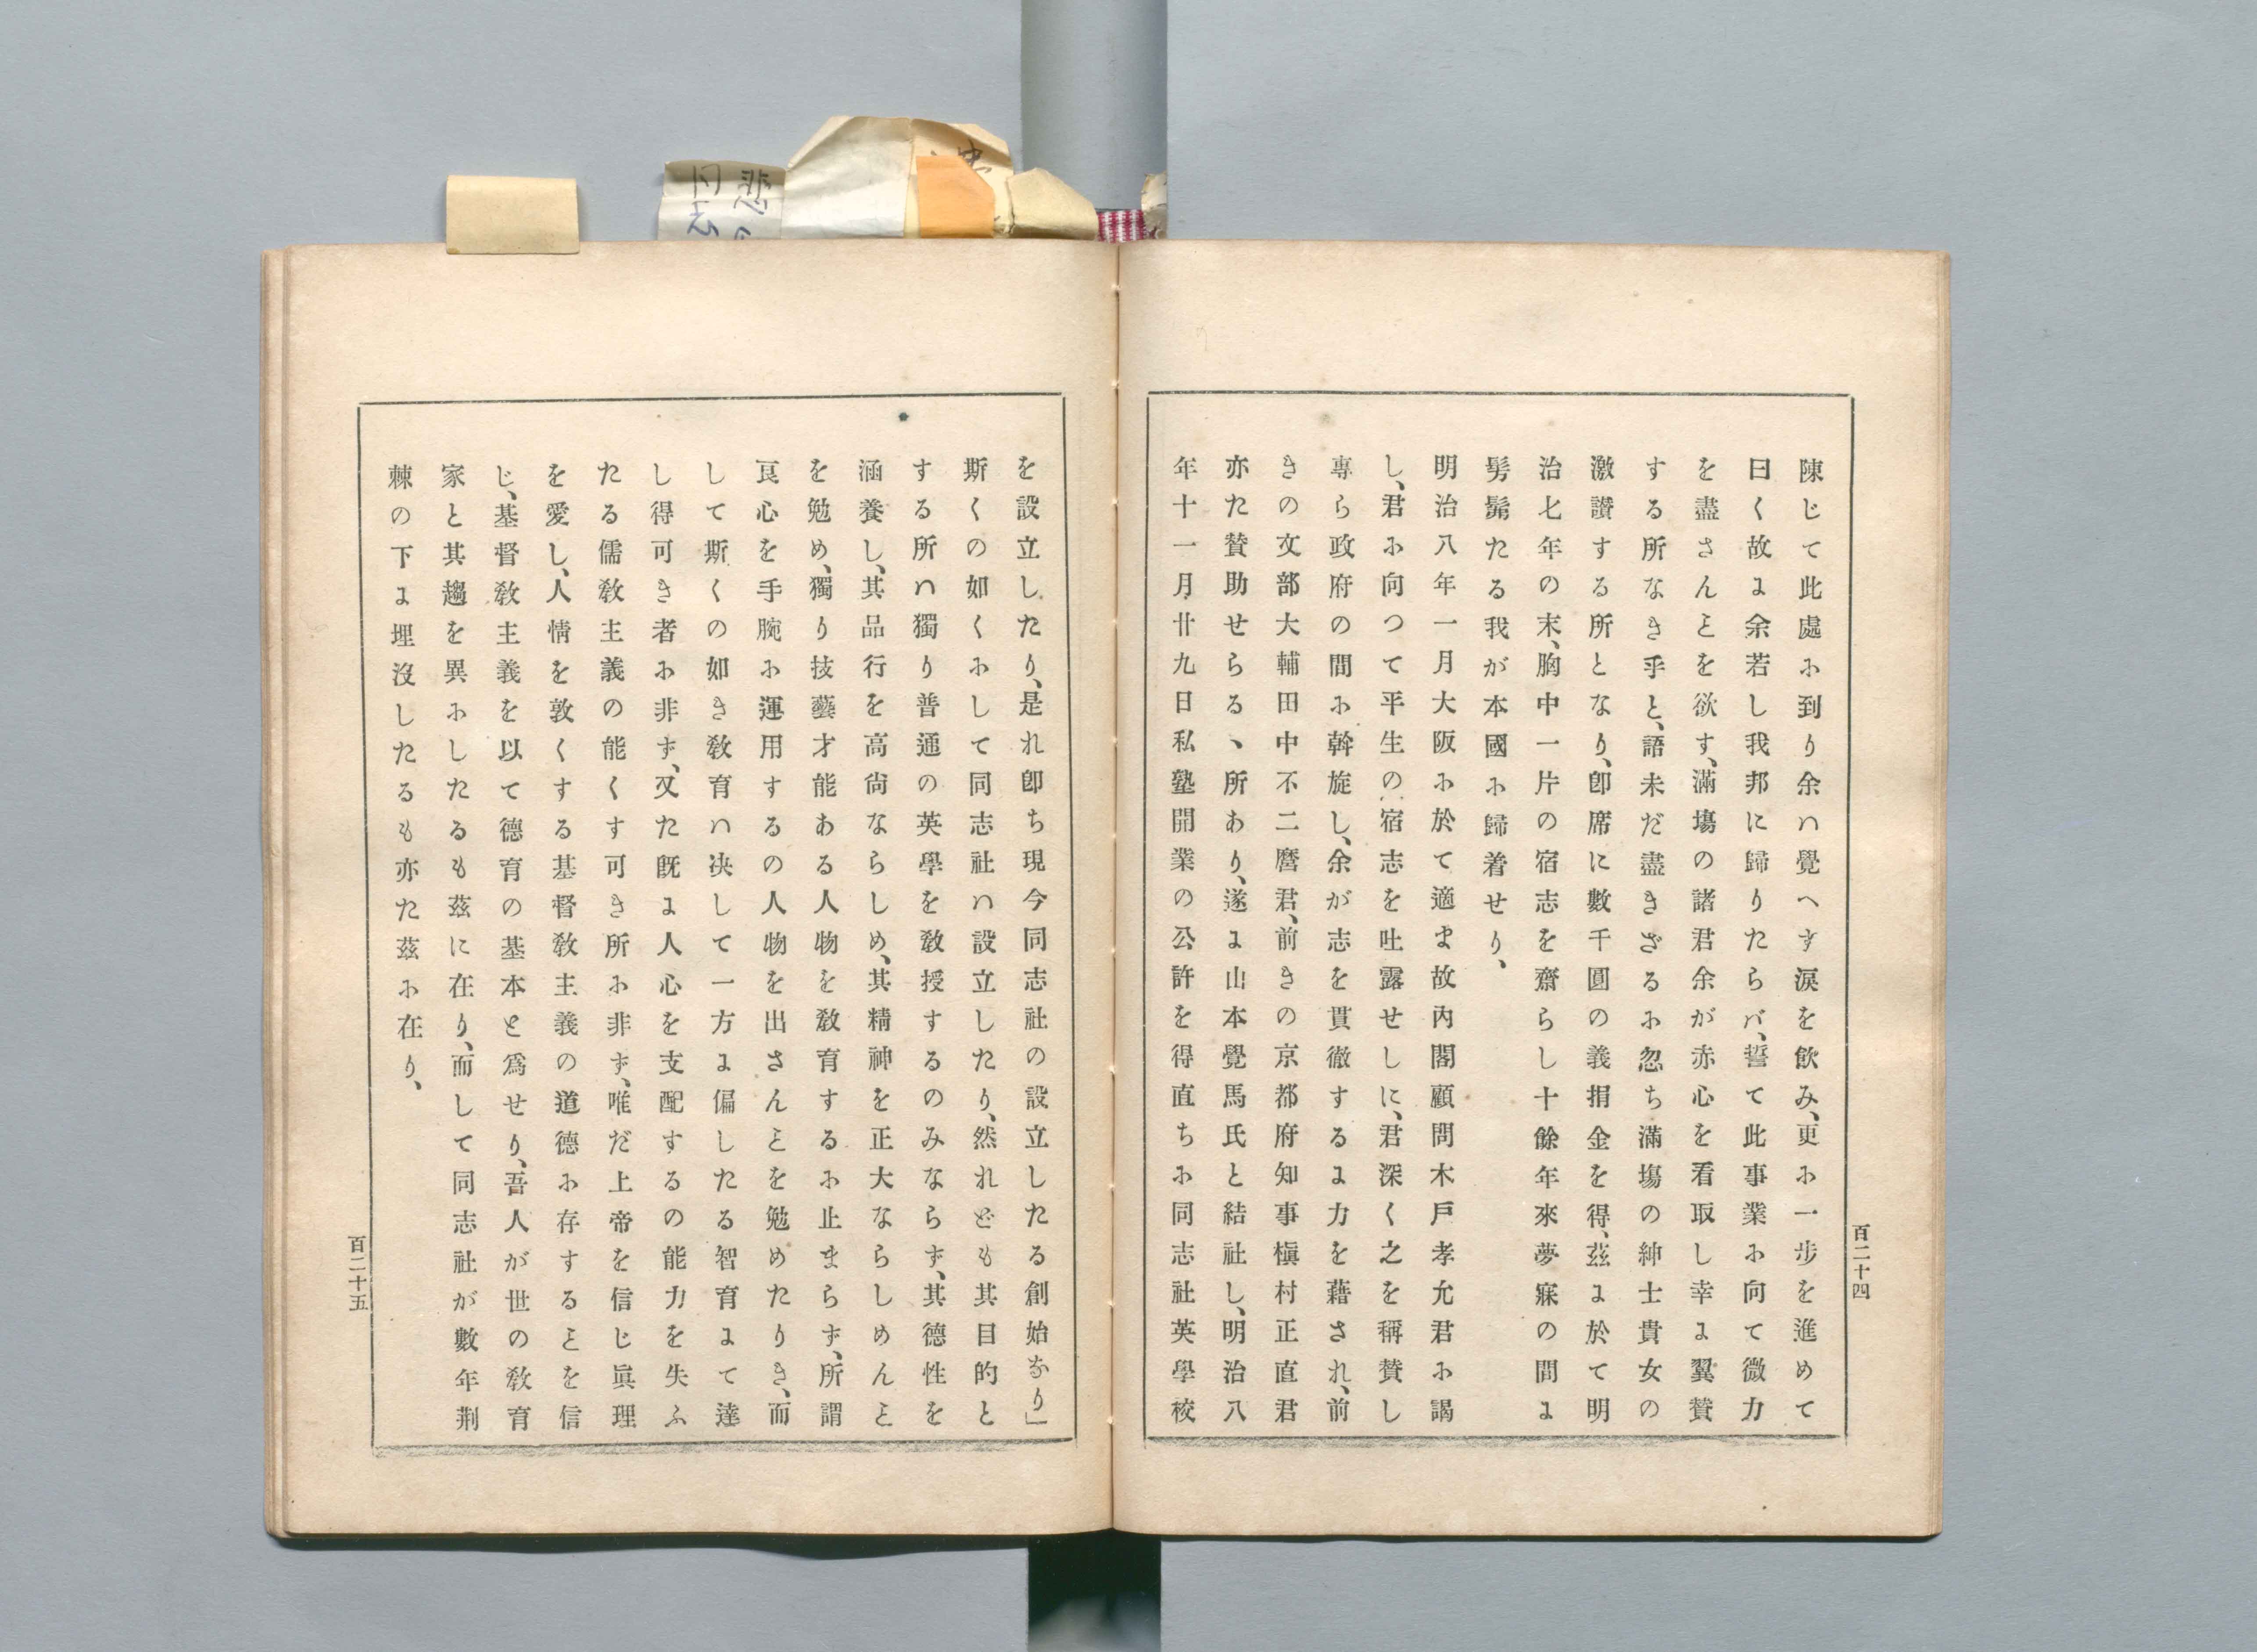 陳じて此處に到り余ハ覺へず涙を飮み、更に一歩を進めて
曰く故に余若し我邦に歸りたらバ、誓て此事業に向て微力
を盡さんことを欲す、滿塲の諸君余が赤心を看取し幸に翼賛
する所なき乎と、語未だ盡きざるに忽ち滿塲の紳士貴女の
激讃する所となり、卽席に數千圓の義捐金を得、茲に於て明
治七年の末、胸中一片の宿志を齎らし十餘年來夢寐の間に
髣髴たる我が本國に歸着せり、
明治八年一月大阪に於て適ま故內閣顧問木戶孝允君に謁
し、君に向つて平生の宿志を吐露せしに、君深く之を稱賛し
專ら政府の間に斡旋し、余が志を貫徹するに力を藉され、前
きの文部大輔田中不二麿君、前きの京都府知事槇村正直君
亦た賛助せらるヽ所あり、遂に山本覺馬氏と結社し、明治八
年十一月廿九日私塾開業の公許を得直ちに同志社英學校
百二十四
を設立したり、是れ卽ち現今同志社の設立したる創始なり」
斯くの如くにして同志社ハ設立したり、然れども其目的と
する所ハ獨り普通の英學を敎授するのみならず、其德性を
涵養し、其品行を高尙ならしめ、其精神を正大ならしめんこと
を勉め、獨り技藝才能ある人物を敎育するに止まらず、所謂
良心を手腕に運用するの人物を出さんことを勉めたりき、而
して斯くの如き敎育ハ决して一方に偏したる智育にて達
し得可き者に非ず、又た旣に人心を支配するの能力を失ふ
たる儒敎主義の能くす可き所に非ず、唯だ上帝を信じ眞理
を愛し、人情を敦くする基督敎主義の道德に存することを信
じ、基督敎主義を以て德育の基本と爲せり、吾人が世の敎育
家と其趨を異にしたるも茲に在り、而して同志社が數年荆
棘の下に埋沒したるも亦た茲に在り、
百二十五